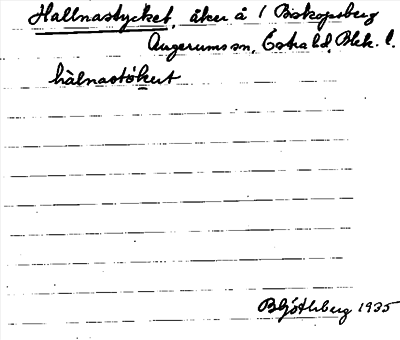 Hallnastycket, åker å 1 Biskopsberg
Augerums sn, Östra hd, Blek. l.
hälnastökert
1935